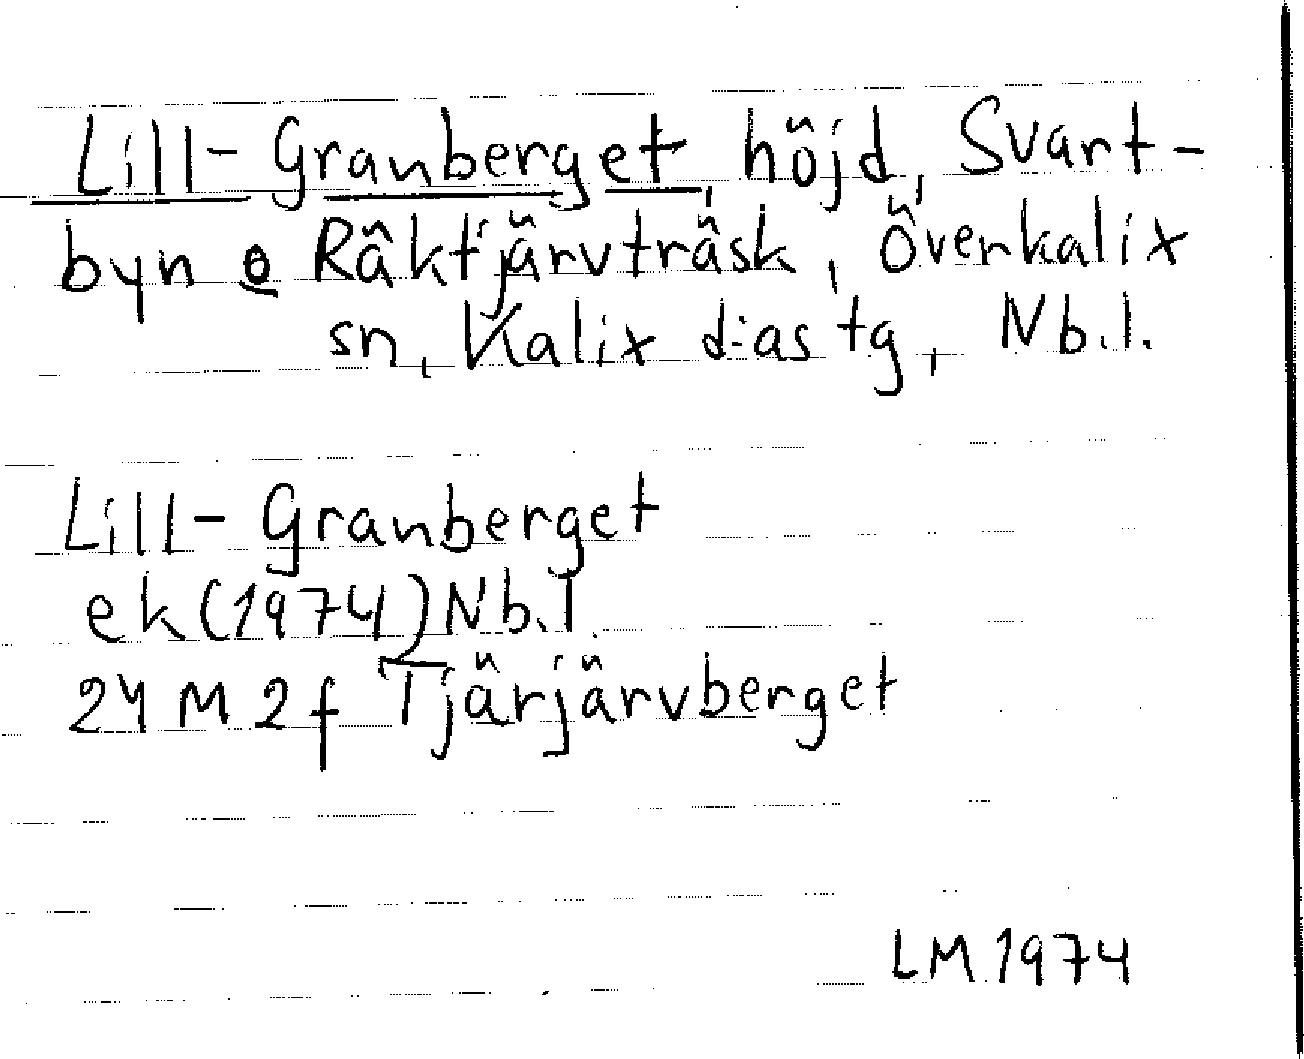 Lill-Granberget, höjd, Svart-
byn o Räktjärvträsk, Överkalix
sn, Kalix d:as tg, Nb.l.
Lill-Granberget
ek (1974) Nb.l.
24 M 2f Tjärjärvberget
LM 1974